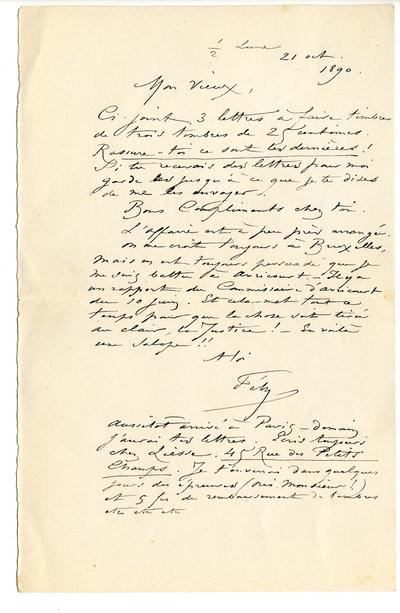 ½ Lune
21 oct.
1890.
Mon Vieux,
Ci-joint 3 lettres à faire timbrer
de trois timbres de 25 centimes.
Rassure-toi ce sont les dernières !
Si tu recevais des lettres pour moi
garde les jusqu'à ce que je te dises
de me les envoyer.
Bons Compliments chez toi.
L'affaire est à peu près arrangée.
on me croit toujours à Bruxelles,
mais on est toujours persuadé que je
me suis battu à Avricourt – Il y a
un rapport du Commissaire d'Avricourt
du 10 juin. Et cela met tout ce
temps pour que la chose soit tirée
au clair, en Justice ! – En voilà
une Salope !!
A toi
Fély
Aussitôt arrivé à Paris – demain
j'aurai tes lettres. Ecris toujours
chez Liesse. 45 Rue des Petits
Champs. Je t'enverrai dans quelques
jours des épreuves (oui Monsieur !)
et 5 frs de remboursement de timbres
etc etc etc